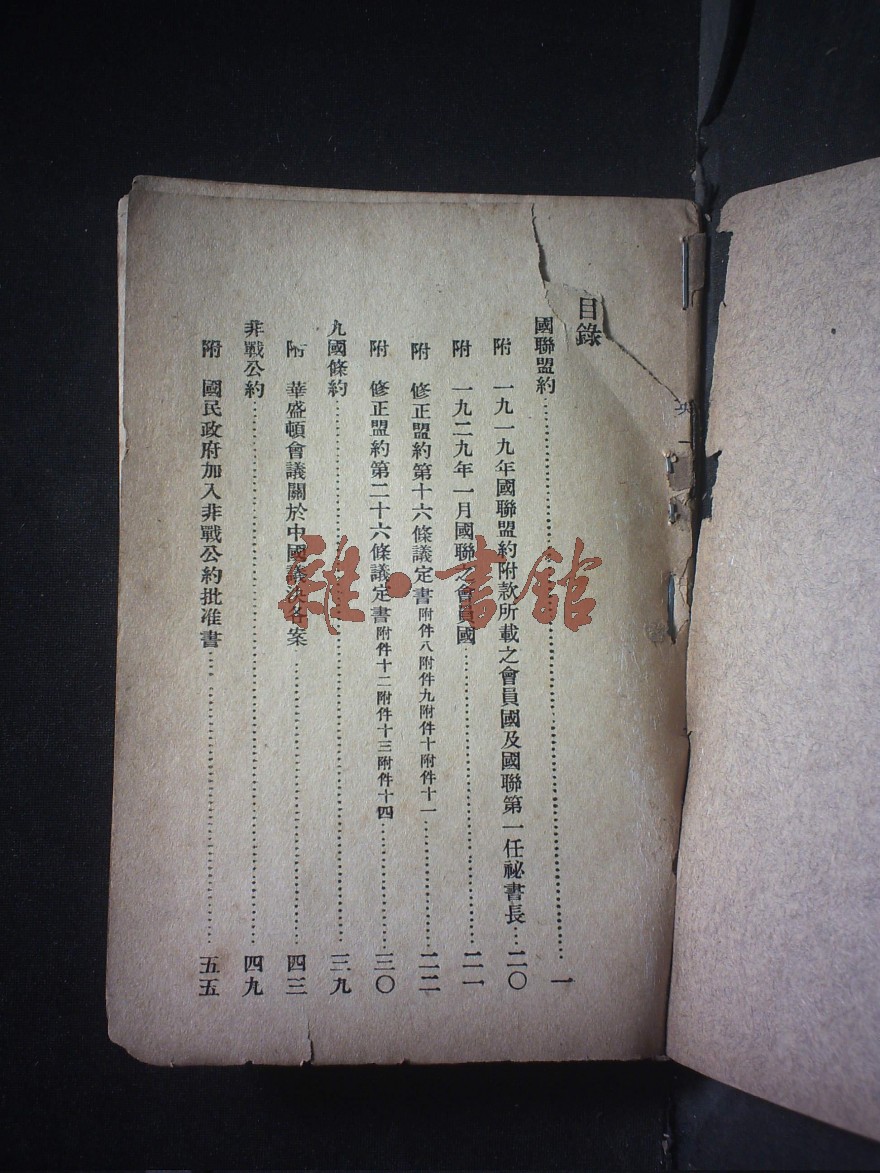 目錄
國聯盟約……一
附 一九一九年國聯盟約附款所載之會員國及國聯第一任祕書長…二〇
附 一九二九年一月國聯之會員國……二一
附 修正盟約第十六條議定書附件八附件九附件十附件十一……二二
附 修正盟約第二十六條議定書附件十二附件十三附件十四……三〇
九國條約……三九
附 華盛頓會議關於中國議決各案……四三
非戰公約……四九
附 國民政府加入非戰公約批准書……五五
雜·書館